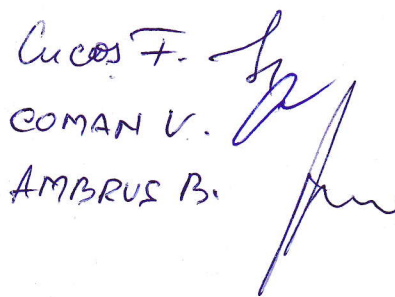 Cucos F.
COMAN V.
AMBRUS B.